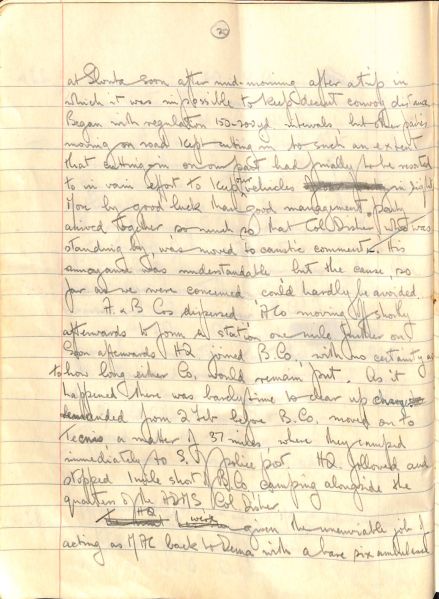 at Slonta soon after mid-morning after a trip in
which it was impossible to keep decent convoy distance.
Began with regulation 150-200 yd intervals, but other parties
moving on road kept cutting in to such an extent
that cutting-in on our part had finally to be resorted
to in vain effort to keep our vehicles in sight.
More by good luck than good management. Party
arrived together, so much so that Col. Disher, who was
standing by, was moved to caustic comment. His
annoyance was understandable but the cause, so
far as we were concerned could hardly be avoided.
A. & B Cos dispersed, A Co moving shortly
afterwards to form a station one mile further on
Soon afterwards HQ joined B. Co, with no certainty as
to how long either Co. would remain put. As it
happened there was barely time to clear up
handed from 2 Feb before B. Co. moved on to
Tecnis, a matter of 37 miles, where they camped
immediately to S. of police post. HQ followed and
stopped 1 mile short of B. Co camping alongside the
quarters of the ADMS Col Disher.
HQ were given the unenviable job of
acting as MAC back to Derna with a bare six ambulances